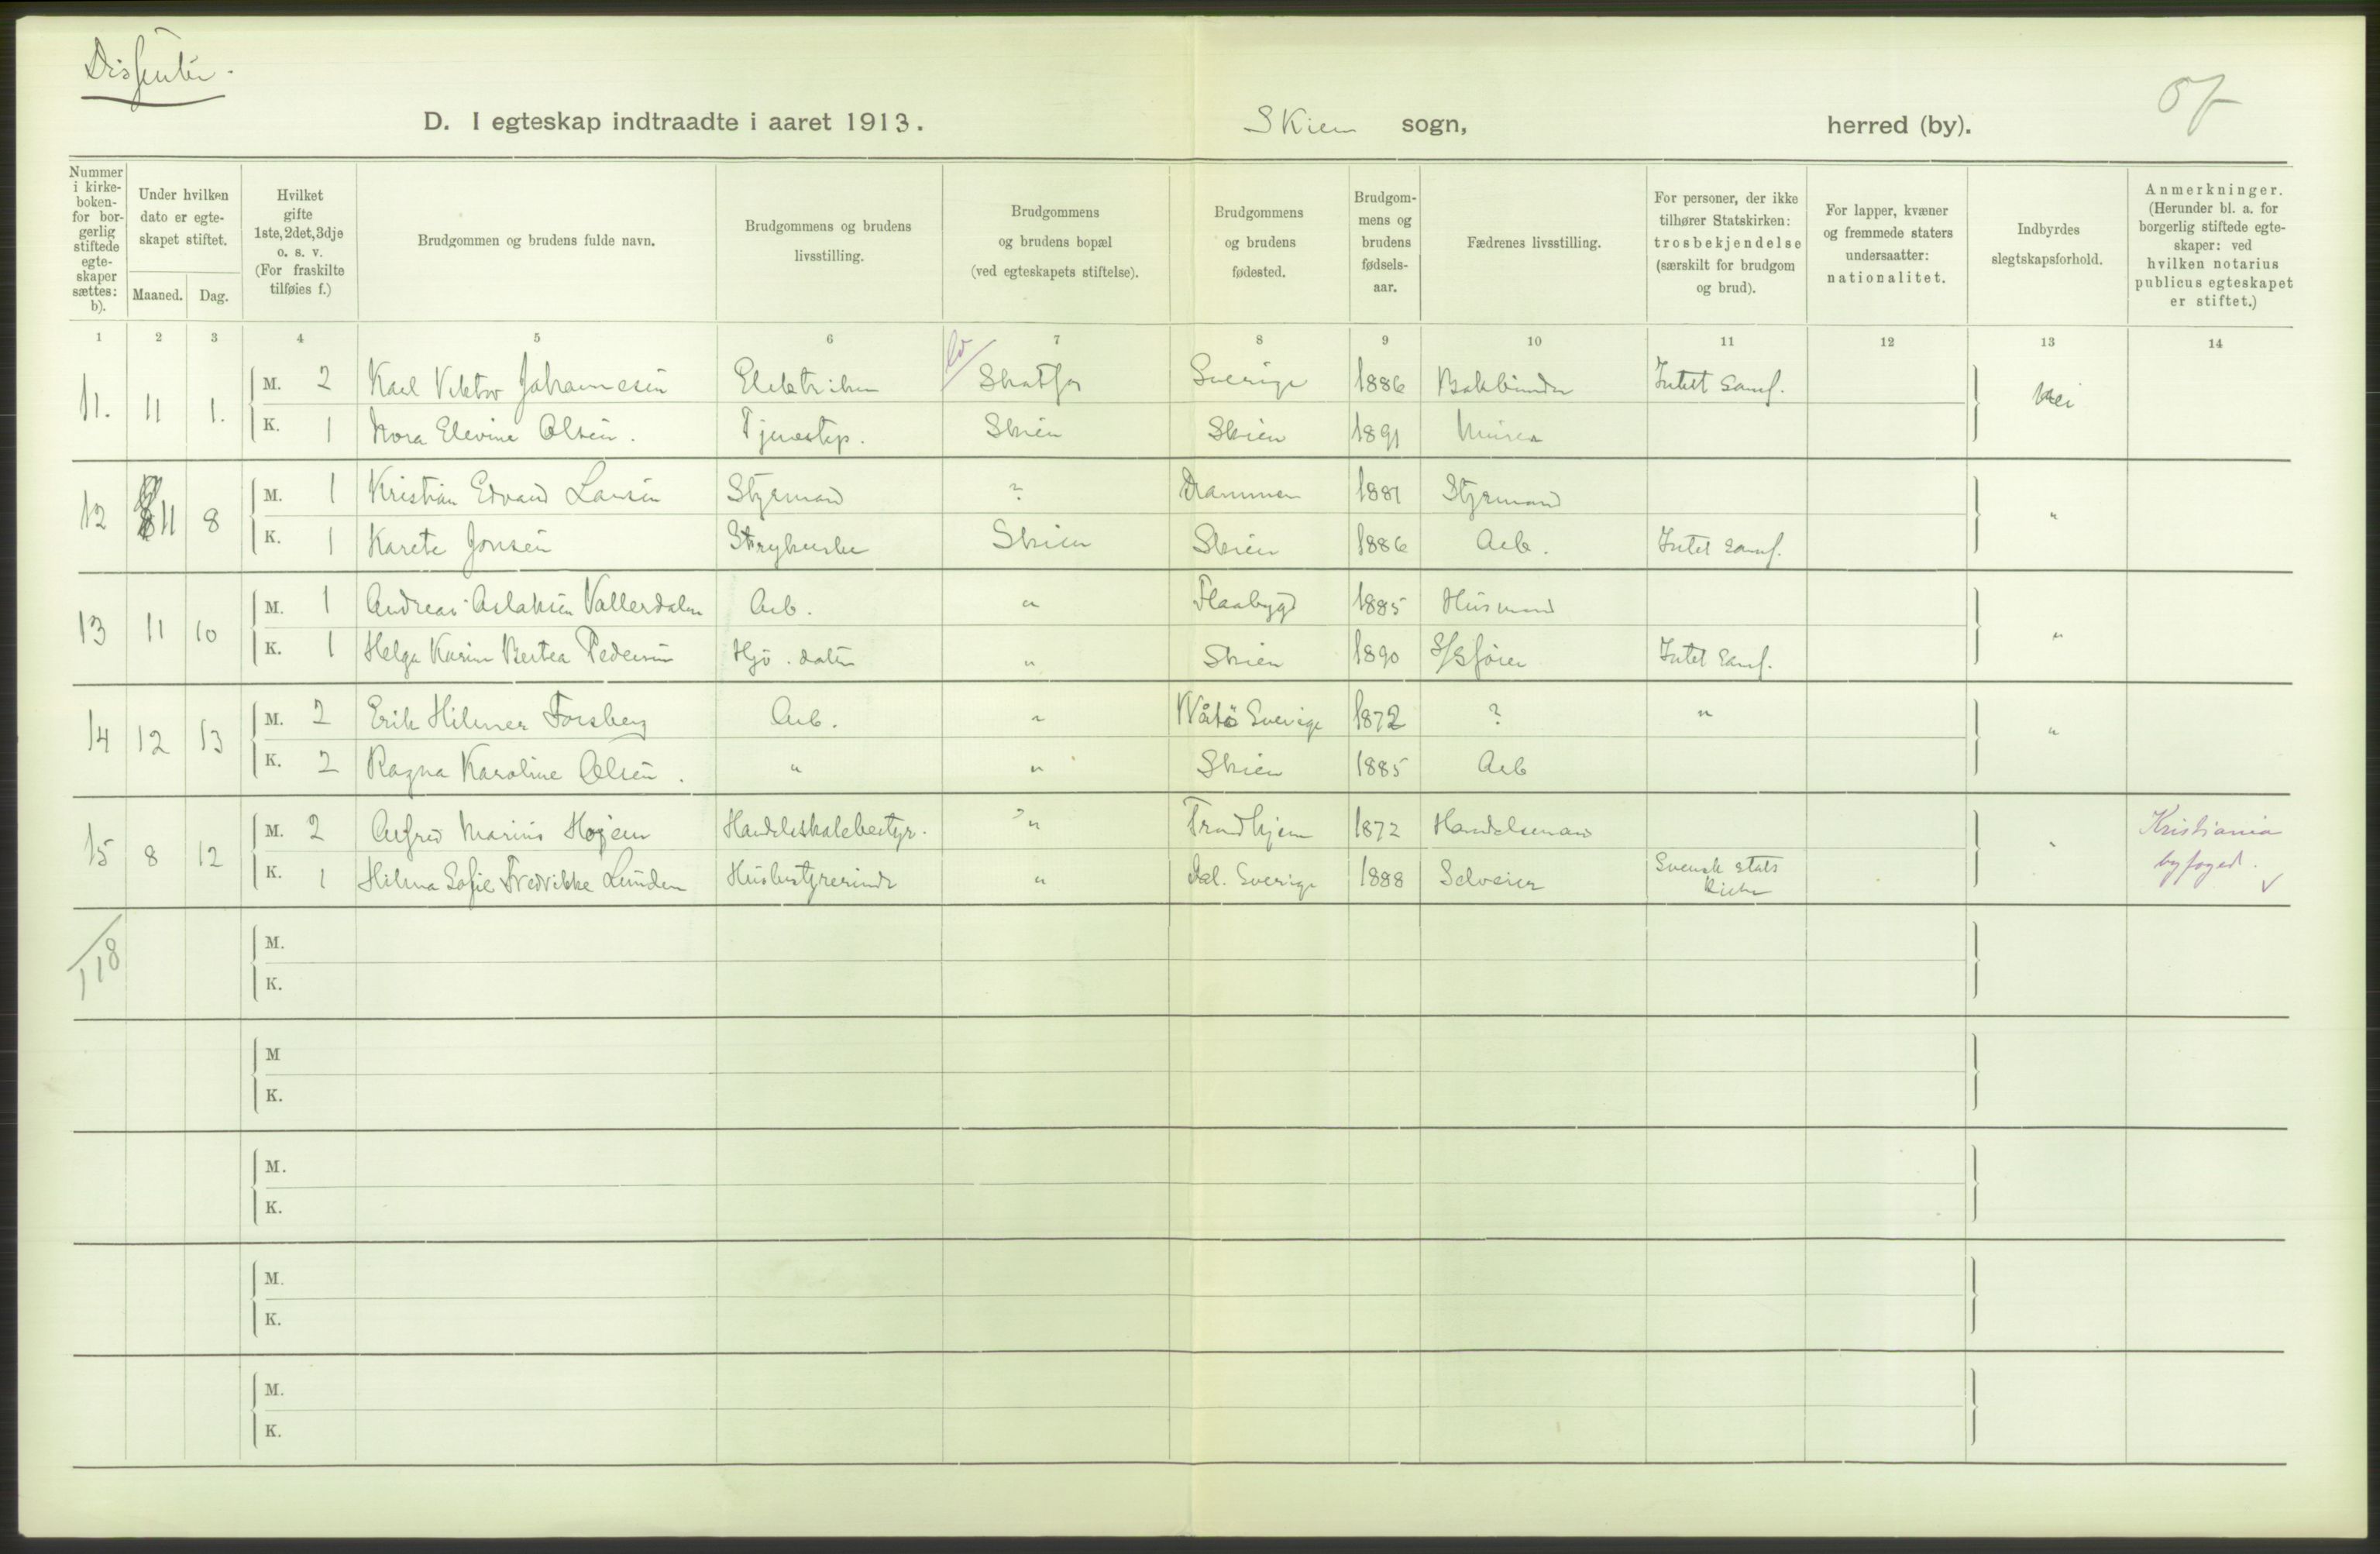 Dissenter.
D. I egteskap indtraadte i aaret 1913. Skien sogn, herred (by).
Nummer i kirke-boken- for bor-gerlig stiftede egte-skaper sættes: b).
Under hvilken dato er egte-skapet stiftet.
Maaned. Dag.
Hvilket gifte 1ste, 2det, 3dje o. s. v. (For fraskilte tilføies f.)
Brudgommen og brudens fulde navn.
Brudgommens og brudens livsstilling.
Brudgommens og brudens bopæl (ved egteskapets stiftelse).
Brudgommens og brudens fødested.
Brudgom-mens og brudens fødsels-aar.
Fædrenes livsstilling.
For personer, der ikke tilhører Statskirken: trosbekjendelse (særskilt for brudgom og brud).
For lapper, kvæner og fremmede staters undersaatter: nationalitet.
Indbyrdes slegtskapsforhold.
Anmerkninger. (Herunder bl. a. for borgerlig stiftede egte-skaper: ved hvilken notarius publicus egteskapet er stiftet.)
1 2 3 4 5 6 7 8 9 10 11 12 13 14
11. 11 1. M. 2 Karl Viktor Johannesen Elektriker Skotfos Sverige 1886 Bokbinder Intet samf. Nei
K. 1 Nora Elevine Olsen. Tjenestep. Skien Skien 1891 Murer
12 11 8 M. 1 Kristian Edvard Larsen Styrmand ? Drammen 1881 Styrmand "
K. 1 Karete Jonsen Strykerske Skien Skien 1886 Arb. Intet samf.
13 11 10 M. 1 Andreas Aslaksen Vallerdalen Arb. " Flaabygd 1885 Husmand "
K. 1 Helga Karin Bertea Pedersen Hj. datter " Skien 1890 S/S fører Intet samf.
14 12 13 M. 2 Erik Hilmer Forsberg Arb. " Sverige 1872 ? " "
K. 2 Ragna Karoline Olsen. " " Skien 1885 Arb
15 8 12 M. 2 Alfred Marius Hojem Handelsskolebestyr. " Trondhjem 1872 Handelsmand " Kristiania
K. 1 Hilma Sofie Fredrikke Lunden Husbestyrerinde " Sverige 1888 Selveier Svensk stats kirke byfoged.
118
M.
K.
M
K.
M.
K.
M.
K.
M.
K.